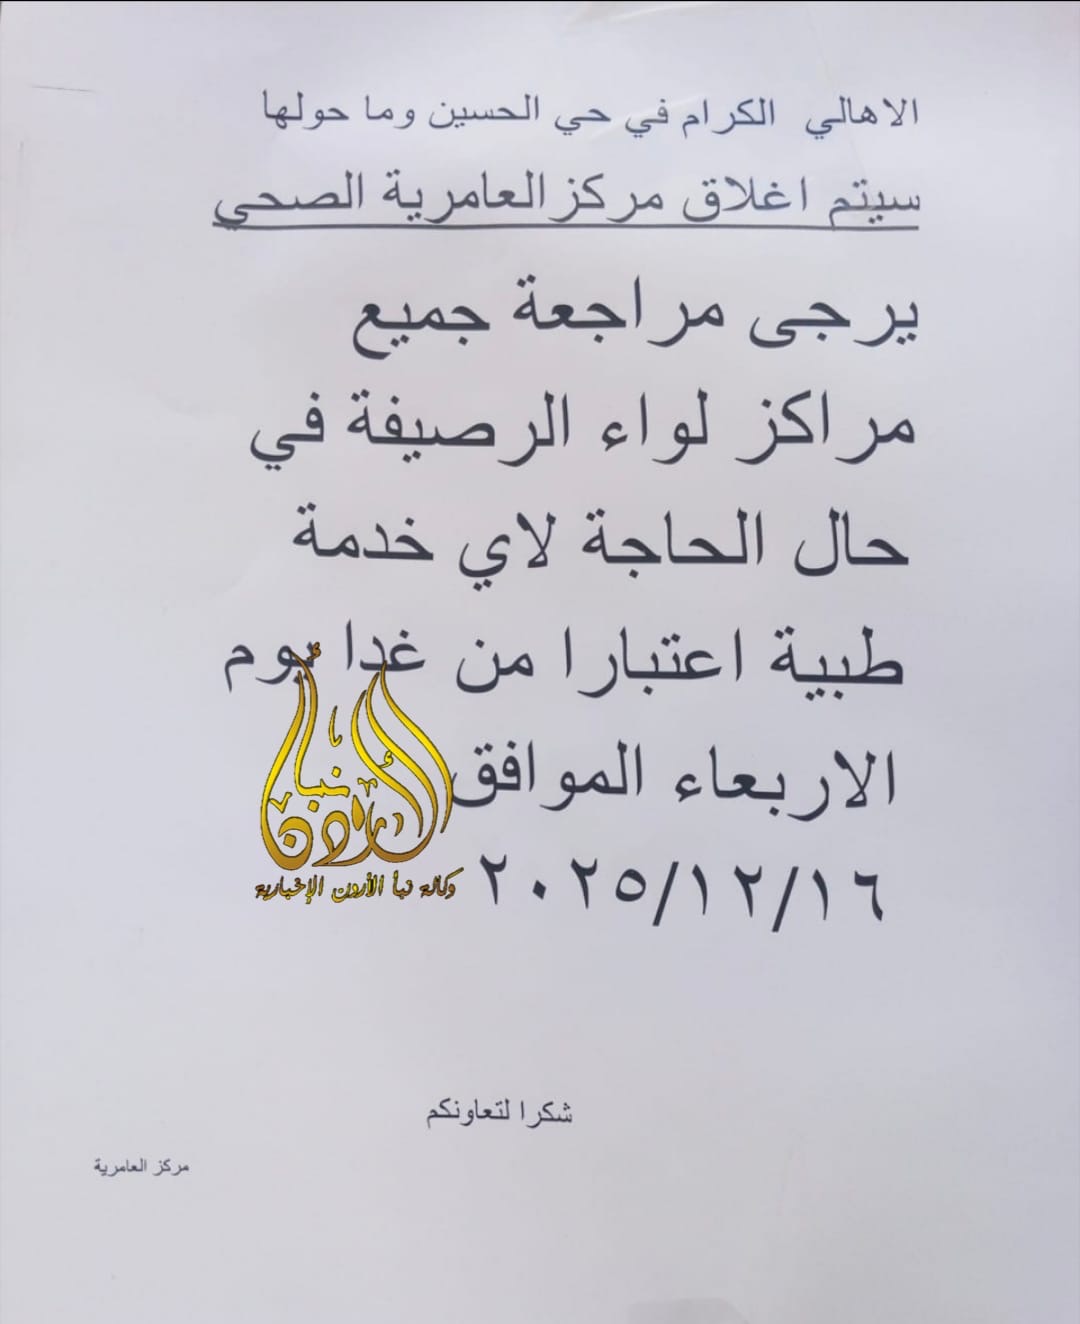 الاهالي الكرام في حي الحسين وما حولها
سيتم اغلاق مركز العامرية الصحي
يرجى مراجعة جميع
مراكز لواء الرصيفة في
حال الحاجة لاي خدمة
طبية اعتبارا من غدا يوم
الاربعاء الموافق
٢٠٢٥/١٢/١٦
نبأ
الأردن
وكالة نبأ الأردن الإخبارية
شكرا لتعاونكم
مركز العامرية